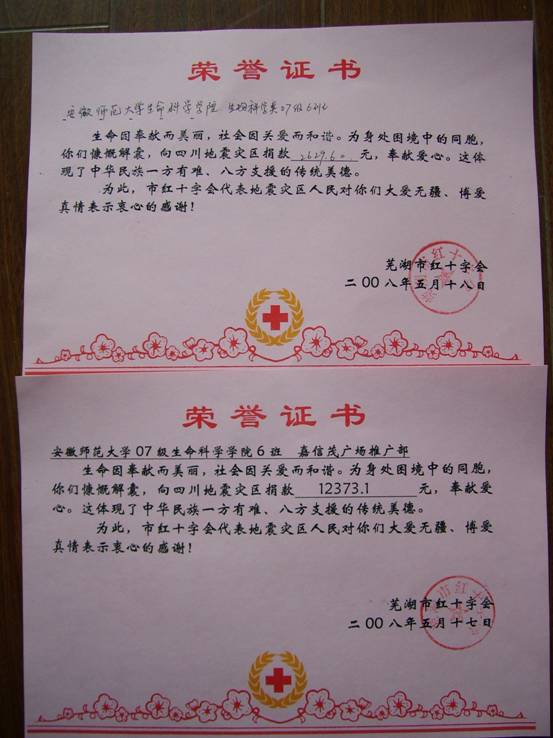 荣誉证书
安徽师范大学生命科学学院 生物科学类07级6班
生命因奉献而美丽，社会因关爱而和谐。为身处困境中的同胞，
你们慷慨解囊，向四川地震灾区捐款 2629.60 元，奉献爱心。这体
现了中华民族一方有难、八方支援的传统美德。
为此，市红十字会代表地震灾区人民对你们大爱无疆、博爱
真情表示衷心的感谢！
芜湖市红十字会
二00八年五月十八日
荣誉证书
安徽师范大学07级生命科学学院6班 嘉信茂广场推广部
生命因奉献而美丽，社会因关爱而和谐。为身处困境中的同胞，
你们慷慨解囊，向四川地震灾区捐款 12373.1 元，奉献爱
心。这体现了中华民族一方有难、八方支援的传统美德。
为此，市红十字会代表地震灾区人民对你们大爱无疆、博爱
真情表示衷心的感谢！
芜湖市红十字会
二00八年五月十七日